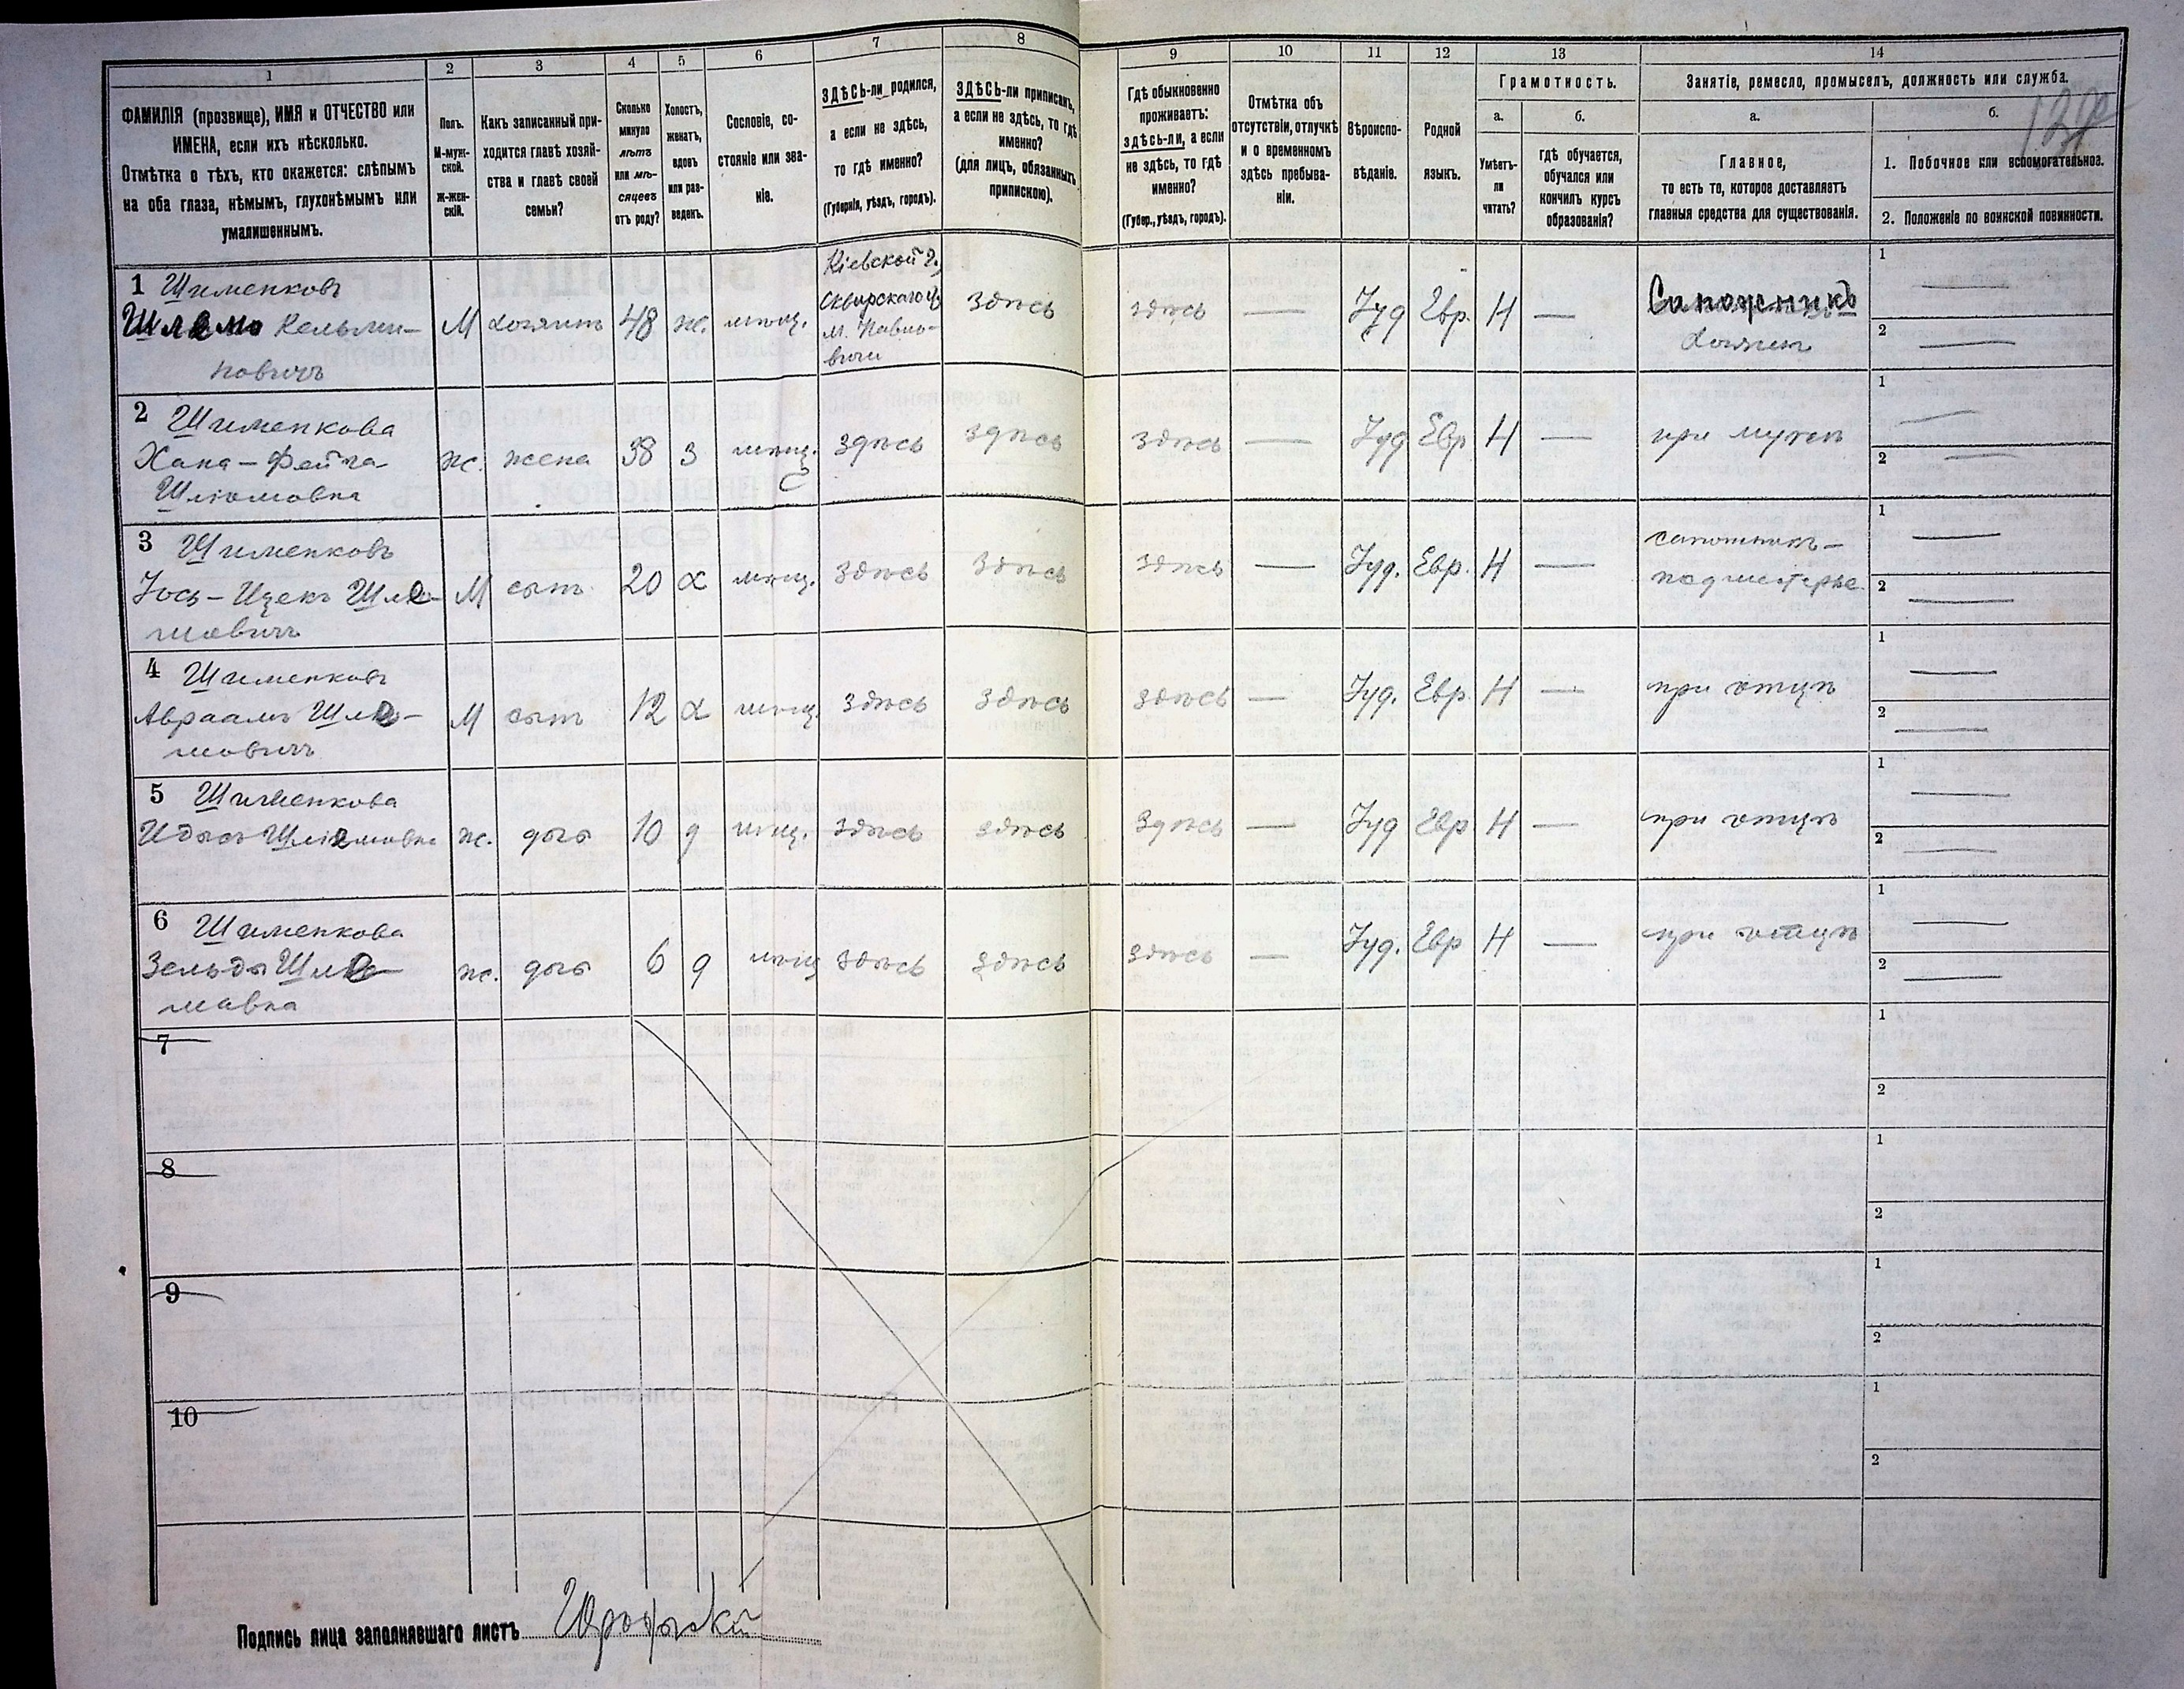 1 2 3 4 5 6 7 8 9 10 11 12 13 14
ФАМИЛІЯ (прозвище), ИМЯ и ОТЧЕСТВО или
ИМЕНА, если ихъ нѣсколько.
Отмѣтка о тѣхъ, кто окажется: слѣпымъ
на оба глаза, нѣмымъ, глухонѣмымъ или
умалишеннымъ.
Полъ.
М-муж-
ской.
Ж-жен-
скій.
Какъ записанный при-
ходится главѣ хозяй-
ства и главѣ своей
семьи?
Сколько
минуло
лѣтъ
или мѣ-
сяцевъ
отъ роду?
Холостъ,
женатъ,
вдовъ
или раз-
веденъ.
Сословіе, со-
стояніе или зва-
ніе.
ЗДѢСЬ-ли родился,
а если не здѣсь,
то гдѣ именно?
(Губернія, уѣздъ, городъ).
ЗДѢСЬ-ли приписанъ,
а если не здѣсь, то гдѣ
именно?
(для лицъ, обязанныхъ
припискою).
Гдѣ обыкновенно
проживаетъ:
здѣсь-ли, а если
не здѣсь, то гдѣ
именно?
(Губер., уѣздъ, городъ).
Отмѣтка объ
отсутствіи, отлучкѣ
и о временномъ
здѣсь пребыва-
ніи.
Вѣроиспо-
вѣданіе.
Родной
языкъ.
Грамотность.
а.
Умѣетъ-
ли
читать?
б.
Гдѣ обучается,
обучался или
кончилъ курсъ
образованія?
Занятіе, ремесло, промыселъ, должность или служба.
а.
Главное,
то есть то, которое доставляетъ
главныя средства для существованія.
б.
1. Побочное или вспомогательное.
2. Положеніе по воинской повинности.
1 Шименковъ
Шлемо Кельми-
новичъ
М хозяинъ 48 ж. мѣщ.
Кіевской г.,
Сквирскаго у.
м.
здѣсь здѣсь — Іуд Евр. Н —
Сапожникъ
хозяинъ
1 —
2 —
2 Шименкова
Хана-Фейга
Шліомовна
ж. жена 38 з мѣщ. здѣсь здѣсь здѣсь — Іуд Евр Н — при мужѣ
1 —
2 —
3 Шименковъ
Іось-Ицекъ Шле-
мовичъ
М сынъ 20 х мѣщ. здѣсь здѣсь здѣсь — Іуд. Евр. Н —
сапожникъ-
подмастерье
1 —
2 —
4 Шименковъ
Авраамъ Шле-
мовичъ
М сынъ 12 х мѣщ. здѣсь здѣсь здѣсь — Іуд. Евр. Н — при отцѣ
1 —
2 —
5 Шименкова
ж. дочь 10 д мѣщ. здѣсь здѣсь здѣсь — Іуд Евр Н — при отцѣ
1 —
2 —
6 Шименкова
Зельда Шле-
мовна
ж. дочь 6 д мѣщ здѣсь здѣсь здѣсь — Іуд. Евр Н — при отцѣ
1 —
2 —
7
1
2
8
1
2
9
1
2
10
1
2
Подпись лица заполнявшаго листъ